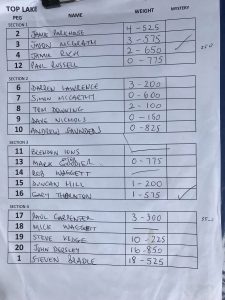 TOP LAKE
PEG NAME WEIGHT MYSTERY
SECTION 1
2 JAMIE PARKHOUSE 4-525
3 JASON McGRATH 3-575
4 JAMIE RICH 2-650
12 PAUL RUSSELL 0-775
SECTION 2
6 DARREN LAWRENCE 3-200
7 SIMON McCARTHY 0-600
8 TOM DOWNING 2-100
9 DAVE NICHOLS 0-150
10 ANDREW SAUNDERS 0-825
SECTION 3
11 BRENDAN IONS
13 MARK GOODIER 0-775
14 ROB WAGGETT
15 DUNCAN HILL 1-200
16 GARY THORNTON 1-575
SECTION 4
17 PAUL CARPENTER 3-300
18 MICK WAGGETT
19 STEVE KEDGE 10-225
20 JOHN DEDSLEY 16-850
1 STEVEN BRADLE 18-525